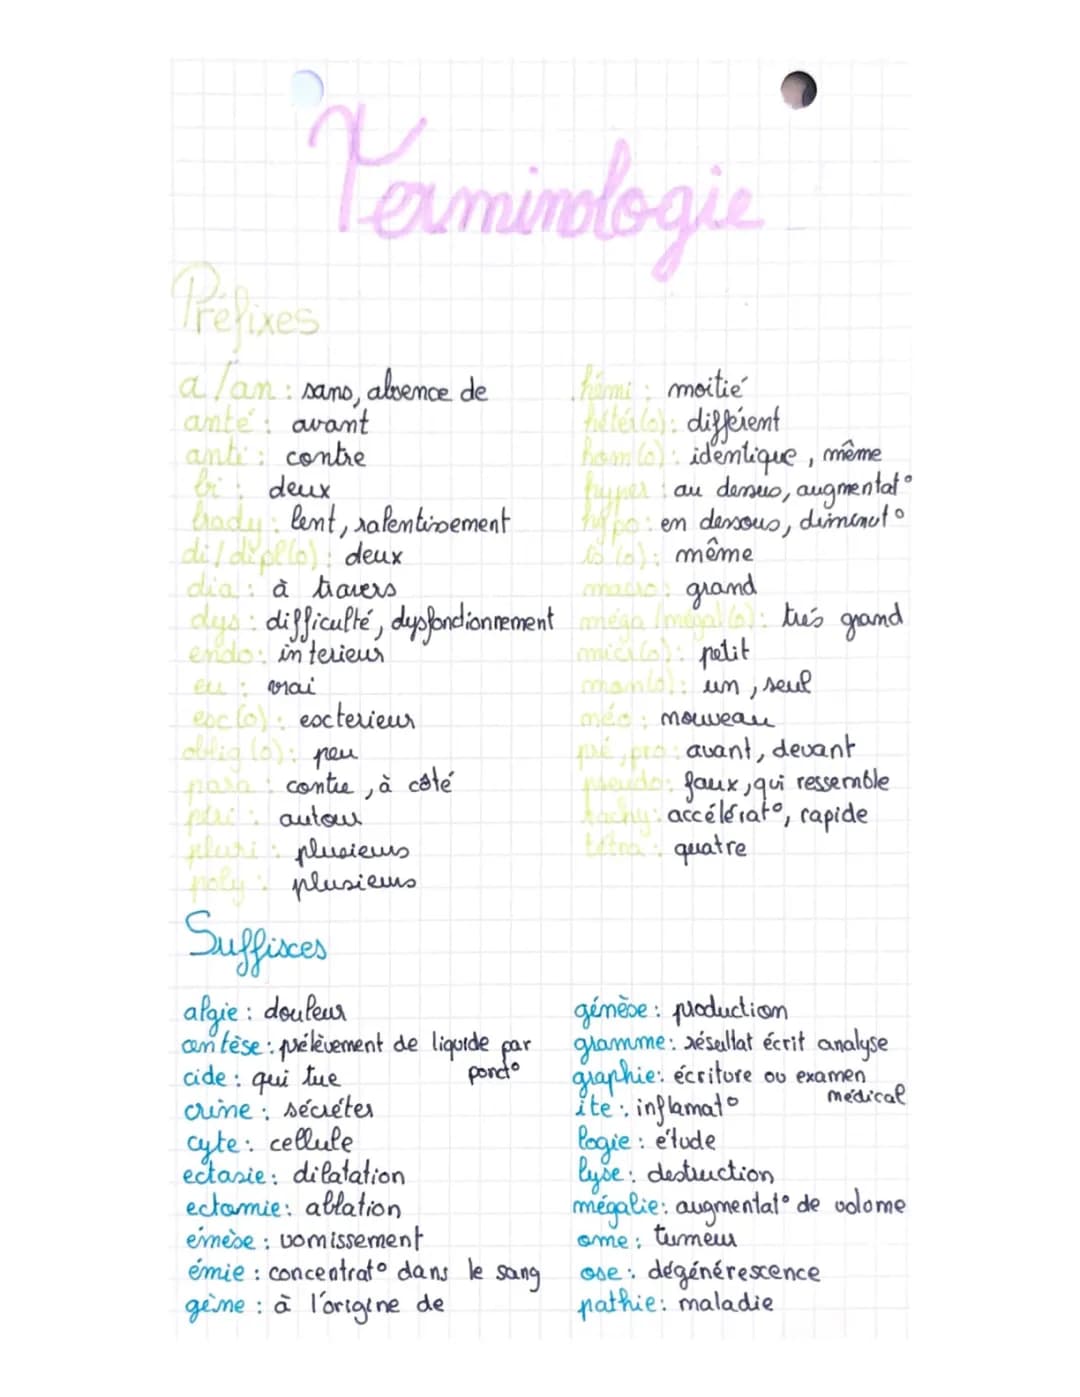 Terminologie
Préfixes
a/an : sans, absence de
anté : avant
anti : contre
bi : deux
brady : lent, ralentissement
di/dipl(o) : deux
dia : à travers
dys : difficulté, dysfonctionnement
endo : interieur
eu : vrai
exc(o) : excterieur
olig(o) : peu
para : contre, à côté
péri : autour
pluri : plusieurs
poly : plusieurs
hémi : moitié
hétér(o) : différent
hom(o) : identique, même
hyper : au dessus, augmentat°
hypo : en dessous, diminut°
is(o) : même
macro : grand
méga/mégal(o) : très grand
micr(o) : petit
mon(o) : un, seul
néo : nouveau
pré, pro : avant, devant
pseudo : faux, qui ressemble
tachy : accélérat°, rapide
tétra : quatre
Suffixes
algie : douleur
centèse : prélèvement de liquide par
ponct°
cide : qui tue
crine : sécréter
cyte : cellule
ectasie : dilatation
ectomie : ablation
émèse : vomissement
émie : concentrat° dans le sang
gène : à l'origine de
génèse : production
gramme : résultat écrit analyse
graphie : écriture ou examen
médical
ite : inflamat°
logie : étude
lyse : destruction
mégalie : augmentat° de volume
ome : tumeur
ose : dégénérescence
pathie : maladie